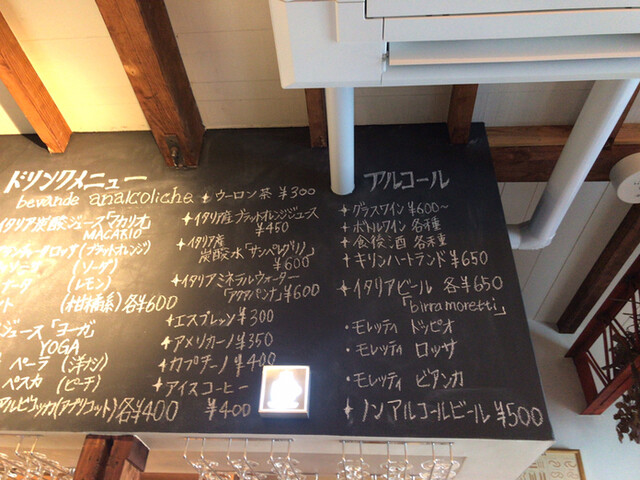 ドリンクメニュー
bevande analcoliche
イタリア炭酸ジュース「マカリオ」
MACARIO
(ブラッドオレンジ)
(ソーダ)
(レモン)
(柑橘系)各¥600
ジュース「ヨーガ」
YOGA
ペーラ (洋ナシ)
ペスカ (ピーチ)
アルビコッカ(アプリコット)各¥400
ウーロン茶 ¥300
イタリア産ブラッドオレンジジュース
¥450
イタリア産
炭酸水「サンペレグリノ」
¥600
イタリアミネラルウォーター
「アクアパンナ」¥600
エスプレッソ ¥300
アメリカーノ ¥350
カプチーノ ¥400
アイスコーヒー
¥400
アルコール
グラスワイン ¥600~
ボトルワイン 各種
食後酒 各種
キリンハートランド ¥650
イタリアビール 各¥650
「birra moretti」
・モレッティ ドッピオ
・モレッティ ロッサ
・モレッティ ビアンカ
ノンアルコールビール ¥500